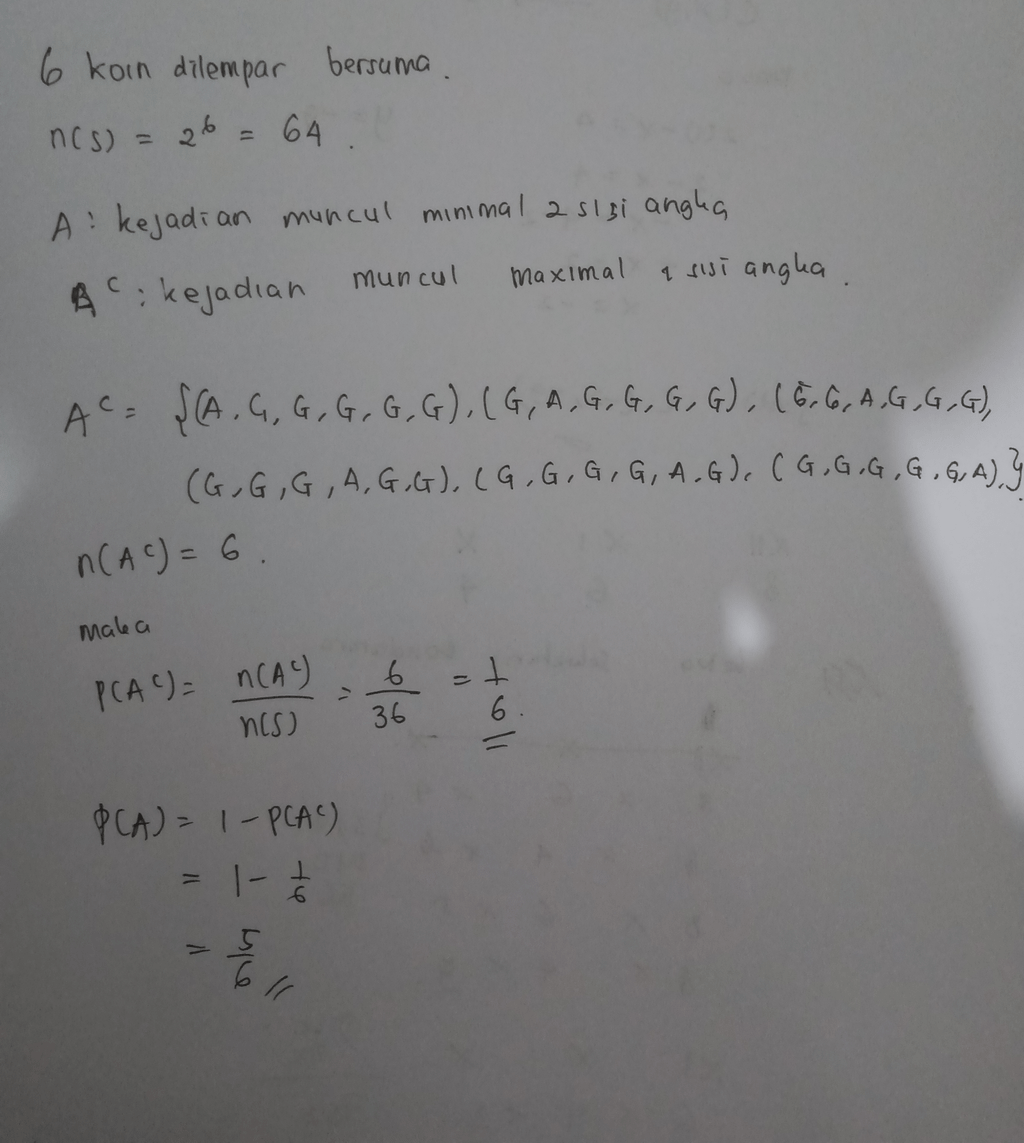 6 koin dilempar bersama.
n(S) = 2^6 = 64.
A : kejadian muncul minimal 2 sisi angka
A^c : kejadian muncul maximal 1 sisi angka.
A^c = {(A, G, G, G, G, G), (G, A, G, G, G, G), (G, G, A, G, G, G),
(G, G, G, A, G, G), (G, G, G, G, A, G), (G, G, G, G, G, A),}
n(A^c) = 6.
maka
P(A^c) = n(A^c)/n(S) = 6/36 = 1/6.
P(A) = 1 - P(A^c)
= 1 - 1/6
= 5/6 //